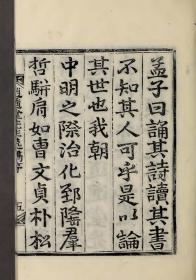 孟子曰誦其詩讀其書
不知其人可乎是以論
其世也我朝
中明之際治化郅隆羣
哲騈肩如曹文貞朴松
五